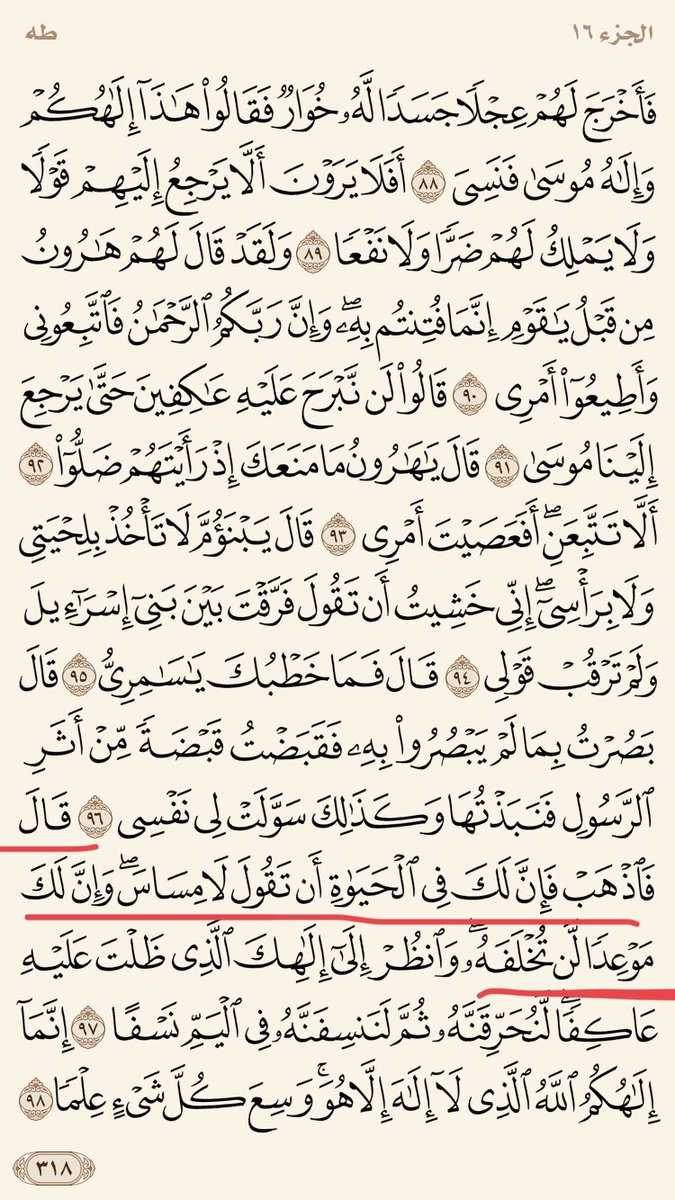 الجزء ١٦
طه
فَأَخْرَجَ لَهُمْ عِجْلًا جَسَدًا لَّهُۥ خُوَارٌ فَقَالُوا۟ هَـٰذَآ إِلَـٰهُكُمْ
وَإِلَـٰهُ مُوسَىٰ فَنَسِىَ ٨٨ أَفَلَا يَرَوْنَ أَلَّا يَرْجِعُ إِلَيْهِمْ قَوْلًا
وَلَا يَمْلِكُ لَهُمْ ضَرًّا وَلَا نَفْعًا ٨٩ وَلَقَدْ قَالَ لَهُمْ هَـٰرُونُ
مِن قَبْلُ يَـٰقَوْمِ إِنَّمَا فُتِنتُم بِهِۦ ۖ وَإِنَّ رَبَّكُمُ ٱلرَّحْمَـٰنُ فَٱتَّبِعُونِى
وَأَطِيعُوٓا۟ أَمْرِى ٩٠ قَالُوا۟ لَن نَّبْرَحَ عَلَيْهِ عَـٰكِفِينَ حَتَّىٰ يَرْجِعَ
إِلَيْنَا مُوسَىٰ ٩١ قَالَ يَـٰهَـٰرُونُ مَا مَنَعَكَ إِذْ رَأَيْتَهُمْ ضَلُّوٓا۟ ٩٢
أَلَّا تَتَّبِعَنِ ۖ أَفَعَصَيْتَ أَمْرِى ٩٣ قَالَ يَبْنَؤُمَّ لَا تَأْخُذْ بِلِحْيَتِى
وَلَا بِرَأْسِىٓ ۖ إِنِّى خَشِيتُ أَن تَقُولَ فَرَّقْتَ بَيْنَ بَنِىٓ إِسْرَٰٓءِيلَ
وَلَمْ تَرْقُبْ قَوْلِى ٩٤ قَالَ فَمَا خَطْبُكَ يَـٰسَـٰمِرِىُّ ٩٥ قَالَ
بَصُرْتُ بِمَا لَمْ يَبْصُرُوا۟ بِهِۦ فَقَبَضْتُ قَبْضَةً مِّنْ أَثَرِ
ٱلرَّسُولِ فَنَبَذْتُهَا وَكَذَٰلِكَ سَوَّلَتْ لِى نَفْسِى ٩٦ قَالَ
فَٱذْهَبْ فَإِنَّ لَكَ فِى ٱلْحَيَوٰةِ أَن تَقُولَ لَا مِسَاسَ ۖ وَإِنَّ لَكَ
مَوْعِدًا لَّن تُخْلَفَهُۥ ۖ وَٱنظُرْ إِلَىٰٓ إِلَـٰهِكَ ٱلَّذِى ظَلْتَ عَلَيْهِ
عَاكِفًا ۖ لَّنُحَرِّقَنَّهُۥ ثُمَّ لَنَنسِفَنَّهُۥ فِى ٱلْيَمِّ نَسْفًا ٩٧ إِنَّمَآ
إِلَـٰهُكُمُ ٱللَّهُ ٱلَّذِى لَآ إِلَـٰهَ إِلَّا هُوَ ۚ وَسِعَ كُلَّ شَىْءٍ عِلْمًا ٩٨
٣١٨